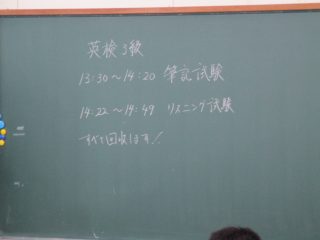 英検3級
13:30〜14:20 筆記試験
14:22〜14:49 リスニング試験
すべて回収します!